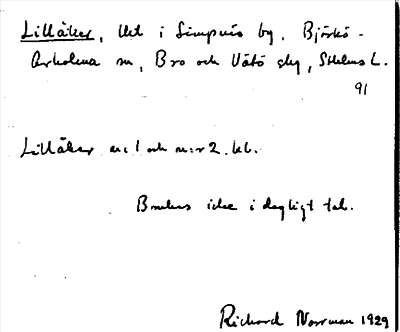 Lillåker, llet i Simpnäs by, Björkö-
Arholma sn, Bro och Vätö slg, Sthlms L.
91
Lillåker nr 1 och nr 2.
Brukas icke i dagligt tal.
Richard Norrman 1929